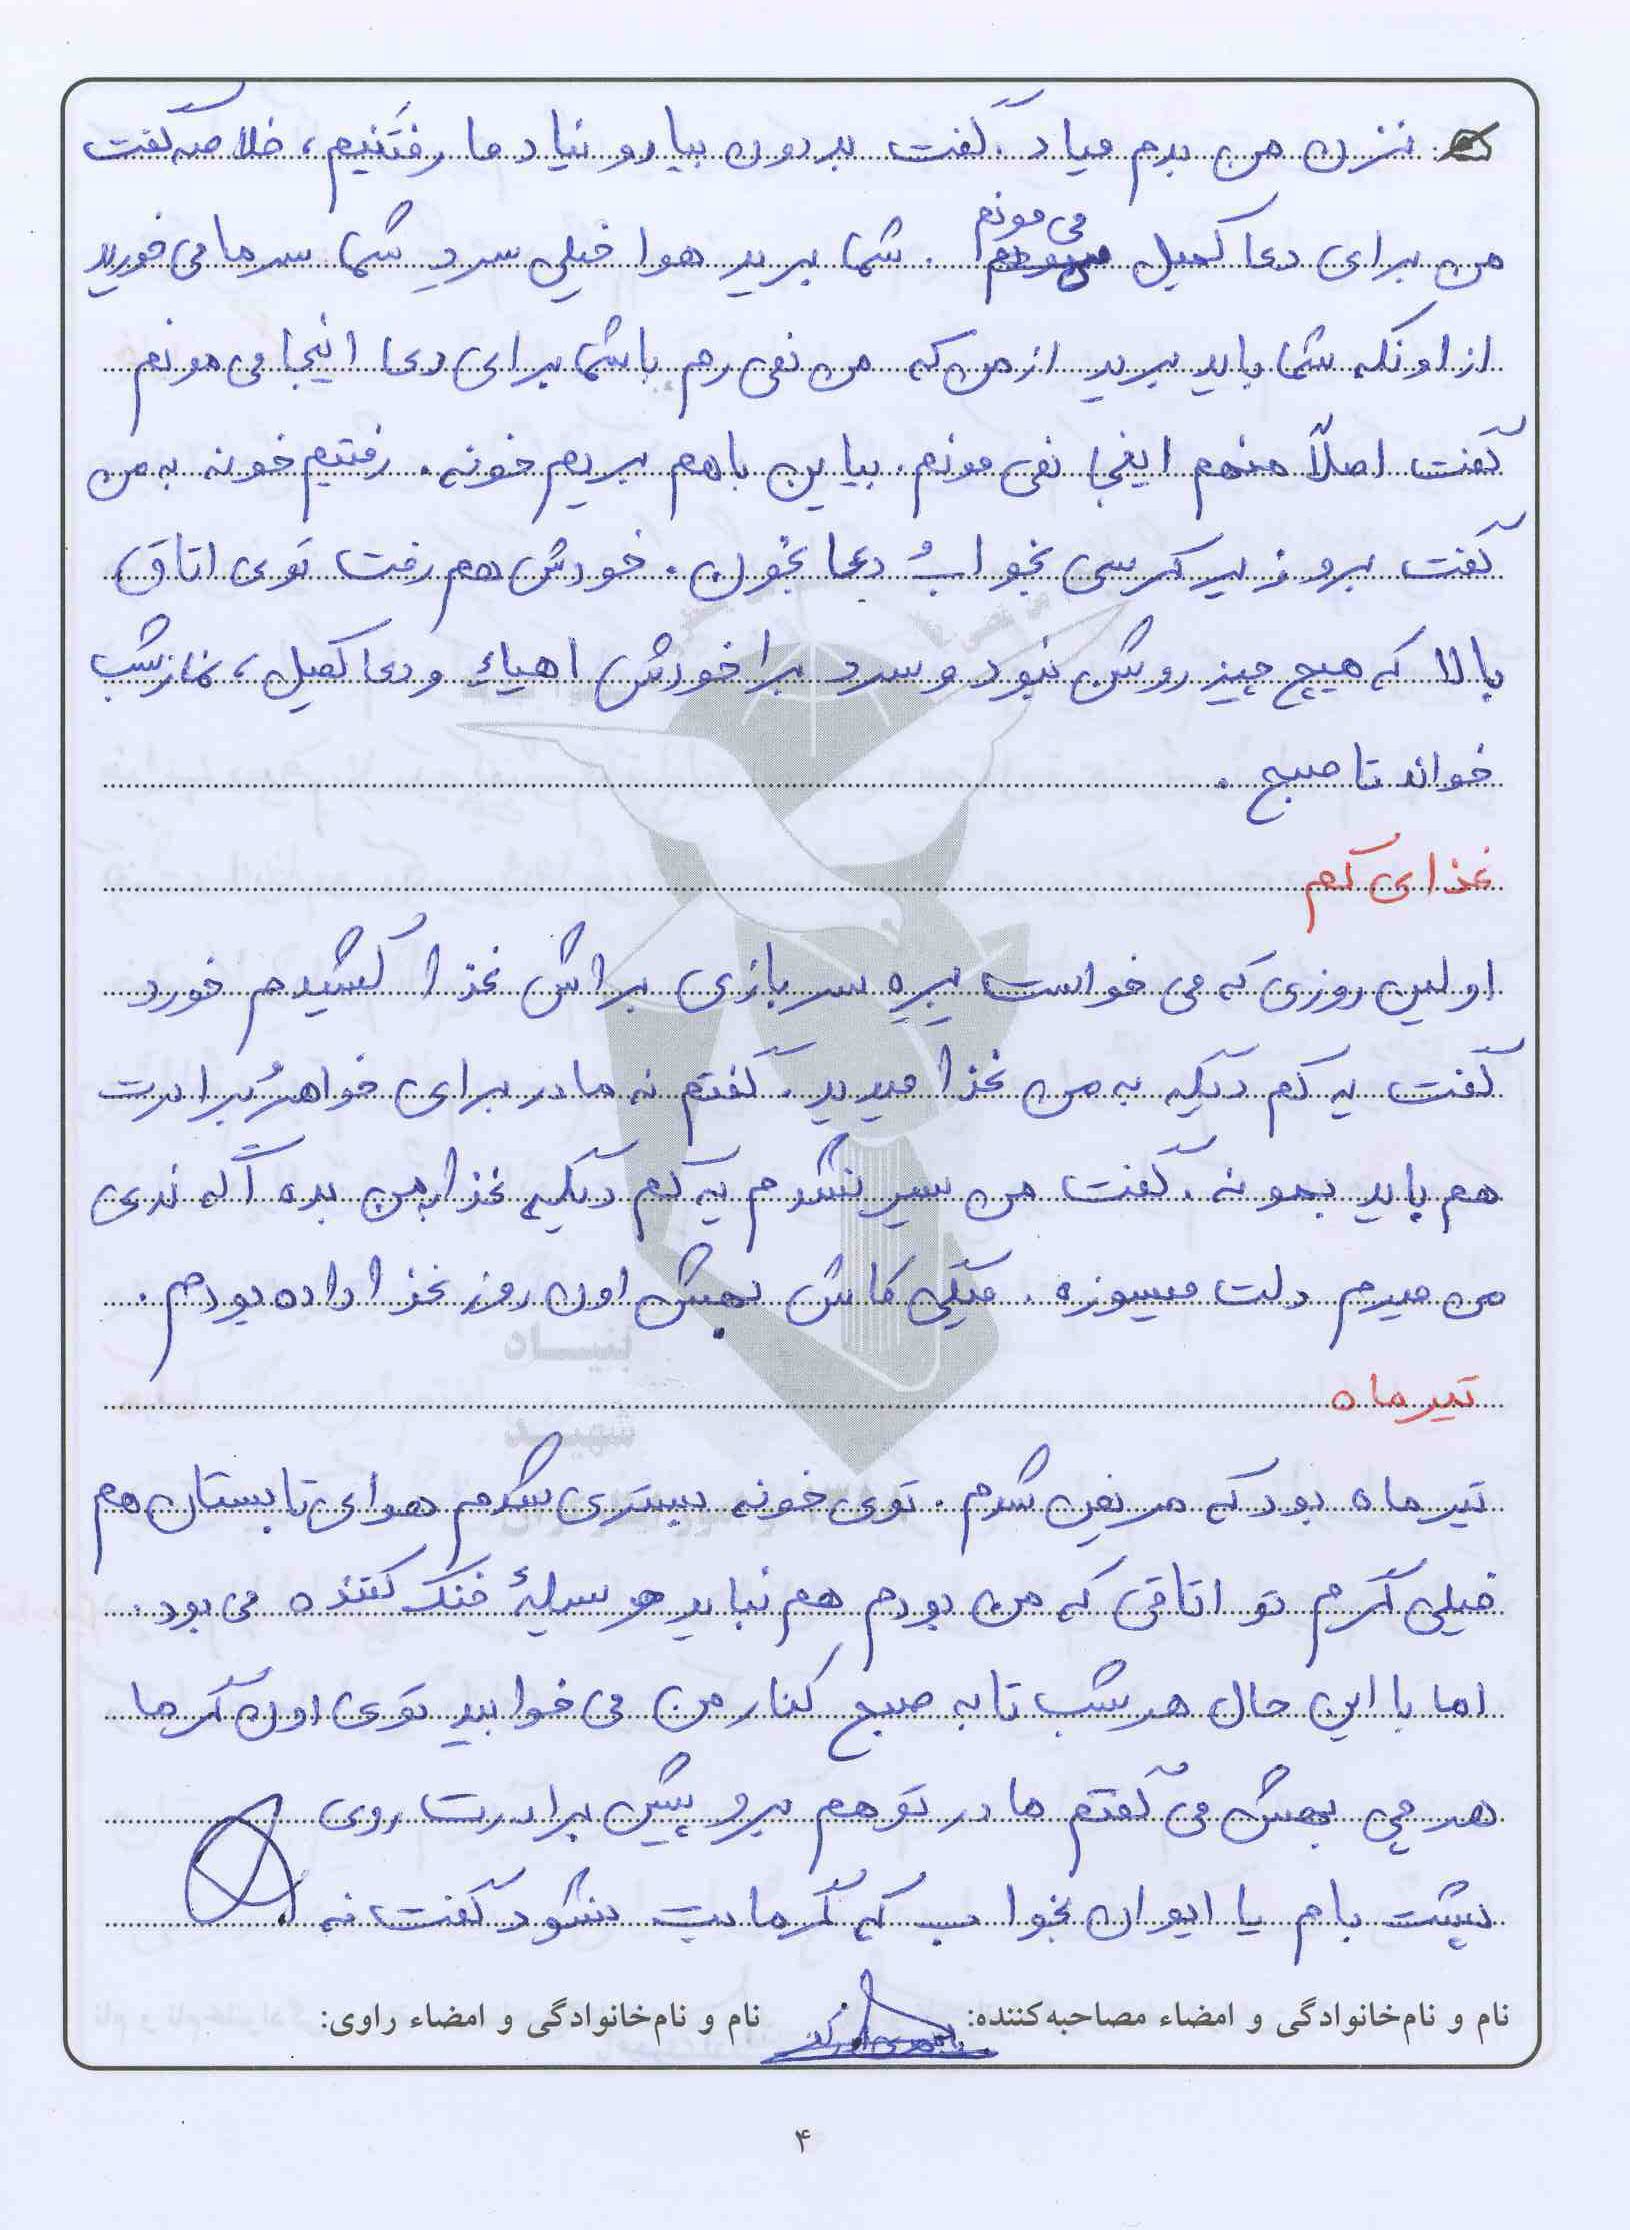 نزن من بدم میاد. گفت بدون بیا رو نیاد ما رفتنیم، خلاصه گفت
می مونم
من برای دعا کمیل . شما برید هوا خیلی سردِ شما سرما می خورید
از اونکه شما باید برید از من که من نمی رم باشما برای دعا اینجا می مونم
گفت اصلاً منهم اینجا نمی مونم. بیاین باهم بریم خونه. رفتیم خونه به من
گفت برو زیر کرسی بخوابُ دعا بخون. خودش هم رفت توی اتاق
بالا که هیچ چیز روشن نبود و سرد برا خودش احیاء و دعا کمیل، نماز شب
خواند تا صبح .
غذای کم
اولین روزی که می خواست بِرِه سربازی براش غذا کشیدم خورد
گفت یه کم دیگه به من غذا میدید. گفتم نه مادر برای خواهرُ برادرت
هم باید بمونه. گفت من سیر نشدم یه کم دیگه غذا به من بده اگه ندی
من میرم دلت میسوزه . میگی کاش بهش اون روز غذا داده بودم .
تیر ماه
تیر ماه بود که مریض شدم . توی خونه بستری شدم هوای تابستان هم
خیلی گرم تو اتاقی که من بودم هم نباید وسیلهٔ خنک کننده می بود.
اما با این حال هر شب تا به صبح کنار من می خوابید توی اون گرما
هر چی بهش می گفتم مادر تو هم برو پیش برادرت روی
پشت بام یا ایوان بخواب که گرمات نشود گفت نه
نام و نام‌خانوادگی و امضاء مصاحبه‌کننده: نام و نام‌خانوادگی و امضاء راوی:
بنیاد
شهید
۴